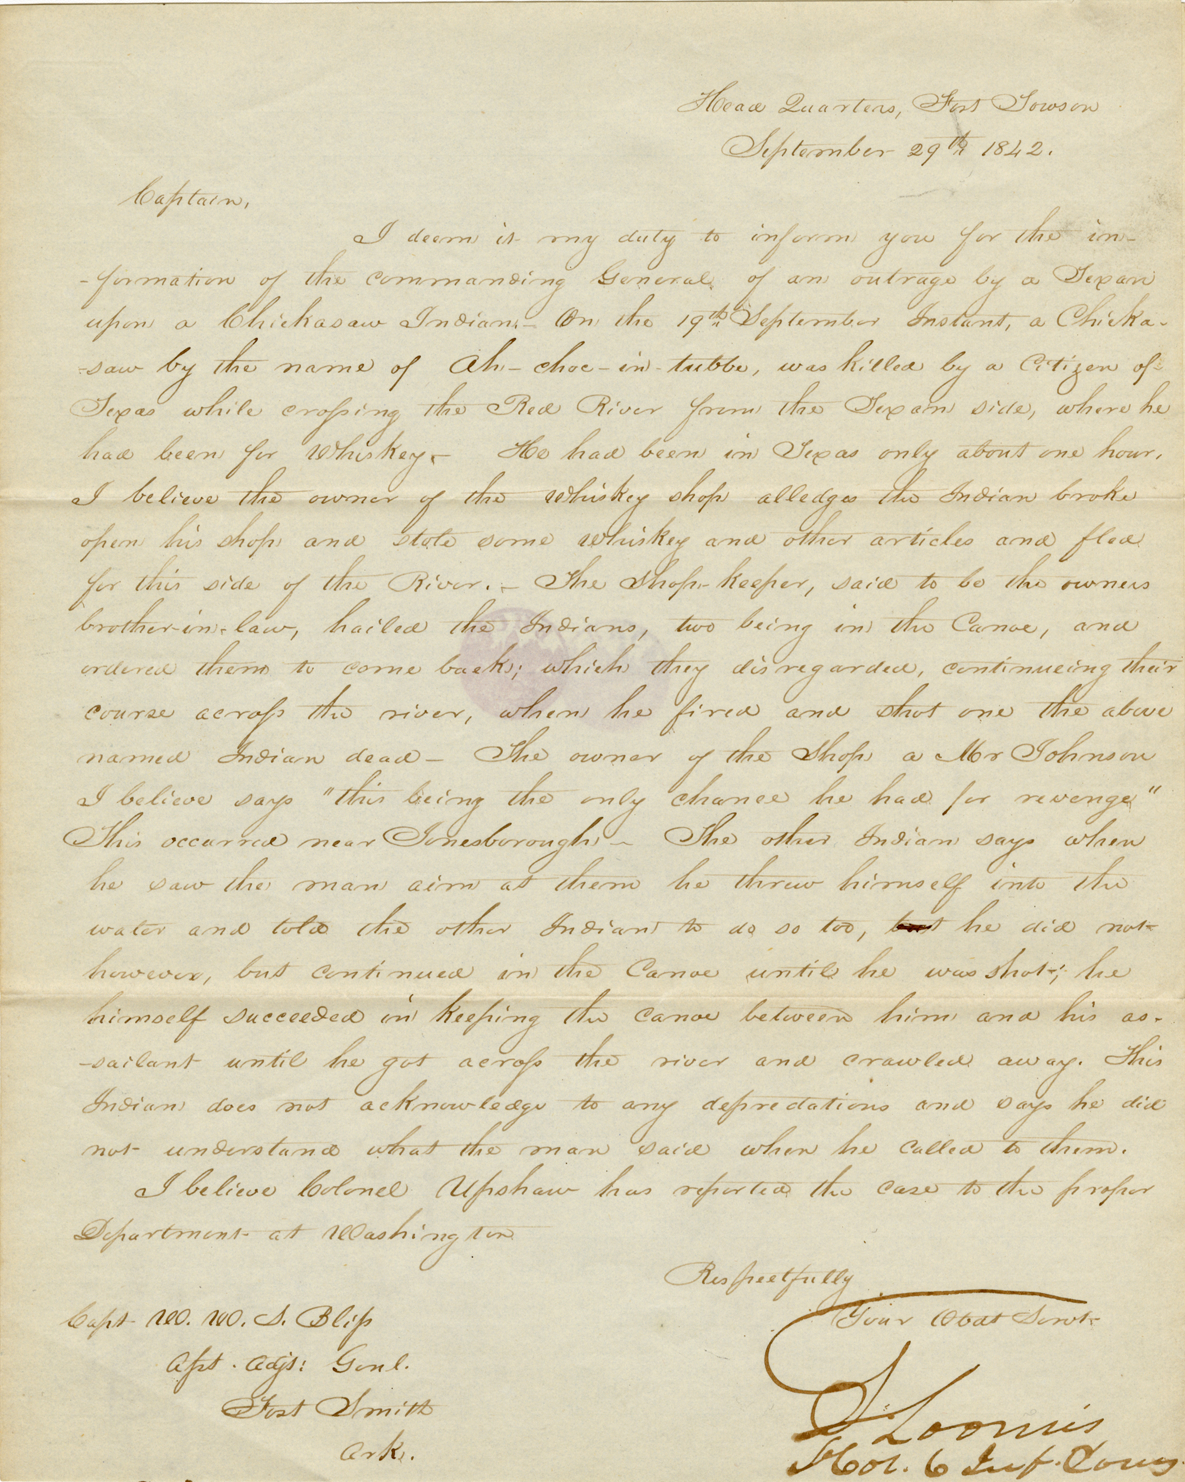 Head Quarters, Fort Towson
September 29th 1842.
Captain,
I deem it my duty to inform you for the in-
-formation of the commanding General, of an outrage by a Texan
upon a Chickasaw Indian.- On the 19th September Instant, a Chicka-
-saw by the name of Ah-choc-in-tubbe, was killed by a Citizen of
Texas while crossing the Red River from the Texan side, where he
had been for Whiskey- He had been in Texas only about one hour.
I believe the owner of the Whiskey shop alledges the Indian broke
open his shop and stole some Whiskey and other articles and fled
for this side of the River.- The Shop-keeper, said to be the owners
brother-in-law, hailed the Indians, two being in the Canoe, and
ordered them to come back; which they disregarded, continueing their
course across the river, when he fired and shot one the above
named Indian dead- The owner of the Shop a Mr Johnson
I believe says "this being the only chance he had for revenge"
This occurred near Jonesborough- The other Indian says when
he saw the man aim at them he threw himself into the
water and told the other Indian to do so too, but he did not
however, but continued in the Canoe until he was shot; he
himself succeeded in keeping the canoe between him and his as-
-sailant until he got across the river and crawled away. This
Indian does not acknowledge to any depredations and says he did
not understand what the man said when he called to them.
I believe Colonel Upshaw has reported the case to the proper
Department at Washington
Respectfully
Your Obdt Servt
Capt W. W. S. Bliss
Asst. Adjt: Genl.
Fort Smith
Ark.
G. Loomis
Lt Col. 6 Inf. Comg